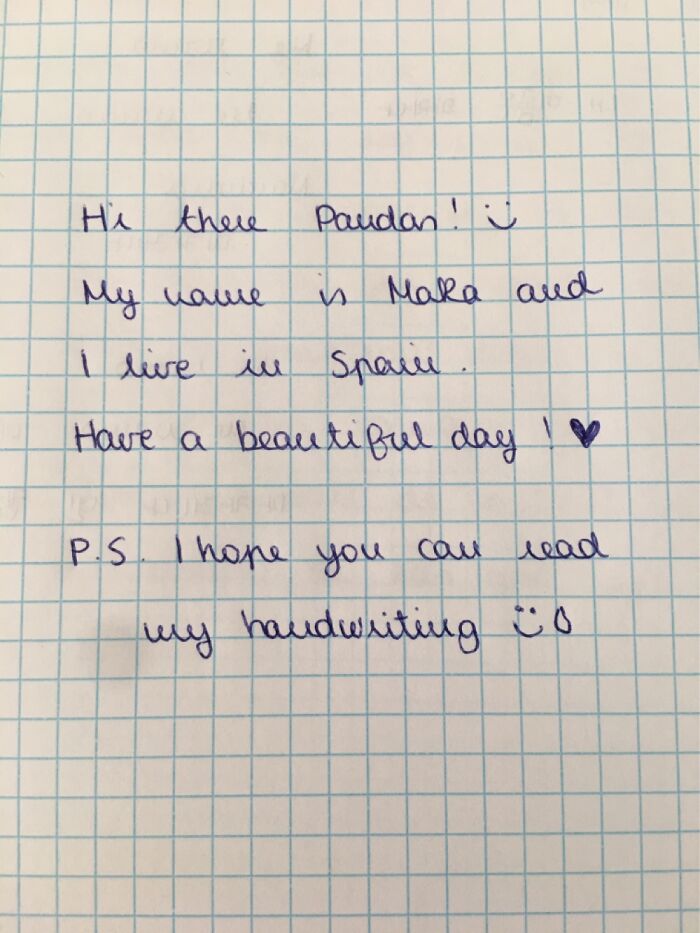 Hi there Pandas! :)
My name is Maka and
I live in Spain.
Have a beautiful day! ♥
P.S. I hope you can read
my handwriting :)